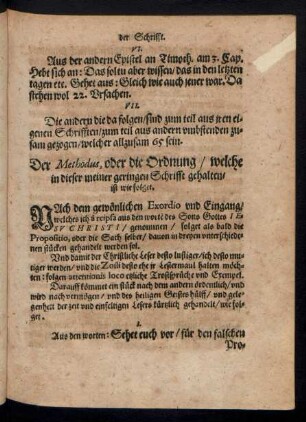 der Schrifft.
VI.
Aus der andern Epistel an Timoth. am 3. Cap.
Hebt sich an: Das soltu aber wissen/ das in den letzten
tagen etc. Gehet aus: Gleich wie auch jener war. Da
stehen wol 22. Vrsachen.
VII.
Die andern die da folgen/ sind zum teil aus jren ei-
genen Schrifften/ zum teil aus andern vmbstenden zu-
sam gezogen/ welcher allzusam 65 sein.
Der Methodus, oder die Ordnung/ welche
in dieser meiner geringen Schrifft gehalten/
ist wie folget.
NAch dem gewönlichen Exordio vnd Eingang/
welches ich à reipsa aus den worten des Sons Gottes IE-
SV CHRISTI/ genommen/ folget als bald die
Propositio, oder die Sach selber/ dauon in dreyen vnterschiede-
nen stücken gehandelt werden sol.
Vnd damit der Christliche Leser desto lustiger/ ich desto mu-
tiger werde/ vnd die Zoili desto ehe jr Lestermaul halten möch-
ten: folgen attentionis loco etliche Trostsprüche vnd Exempel.
Darauff kömmet ein stück nach dem andern ordentlich/ vnd
wird nach vermögen/ vnd des heiligen Geistes hülff/ vnd gele-
genheit der zeit vnd einfeltigen Lesers kürtzlich gehandelt/ wie fol-
get.
I.
Aus den worten: Sehet euch vor/ für den falschen
Pro-